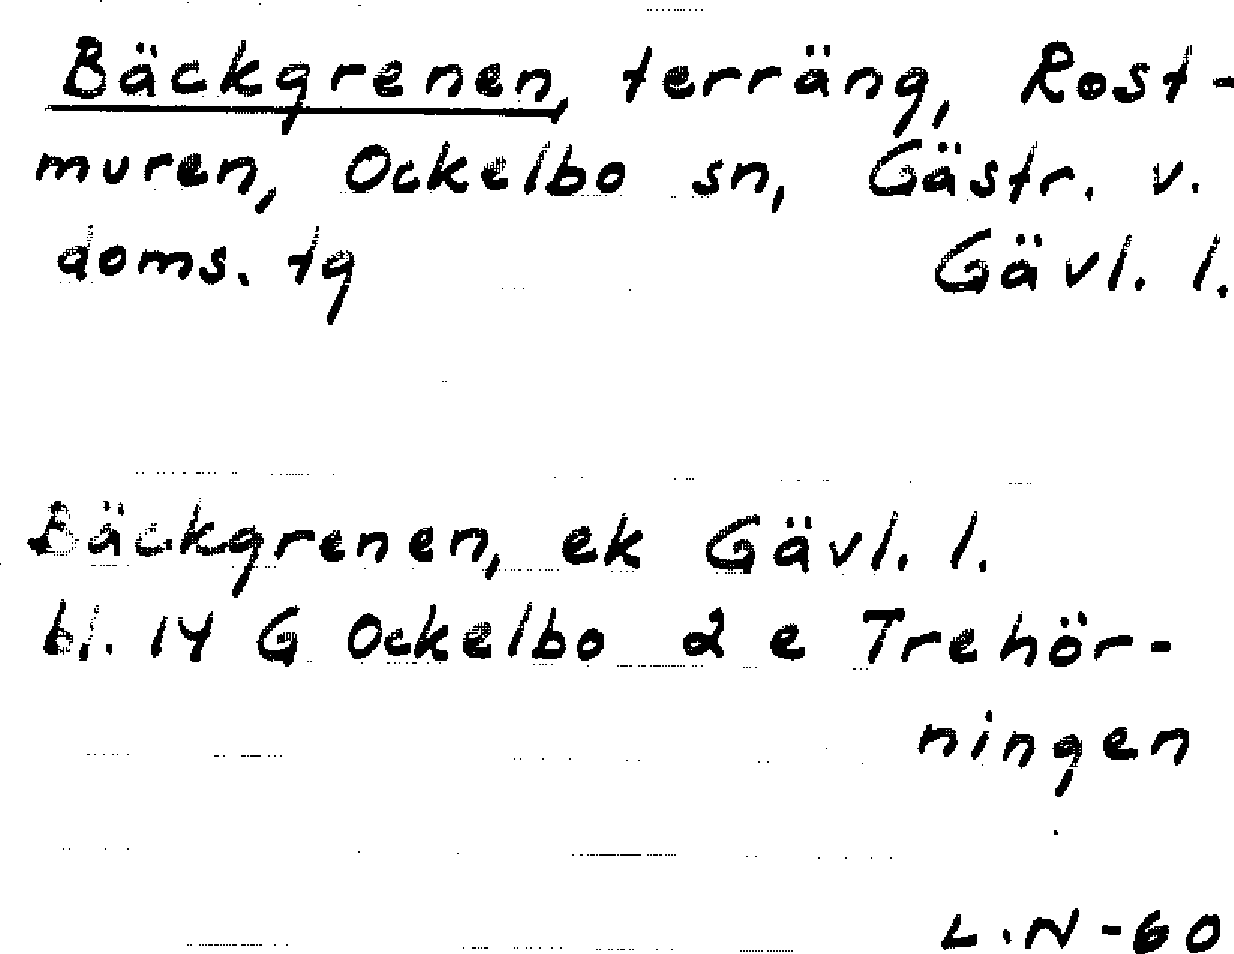 Bäckgrenen, terräng, Rost-
muren, Ockelbo sn, Gästr. v.
doms. tg Gävl. l.
Bäckgrenen, ek Gävl. l.
bl. 14 G Ockelbo 2 e Trehör-
ningen
L.N-60